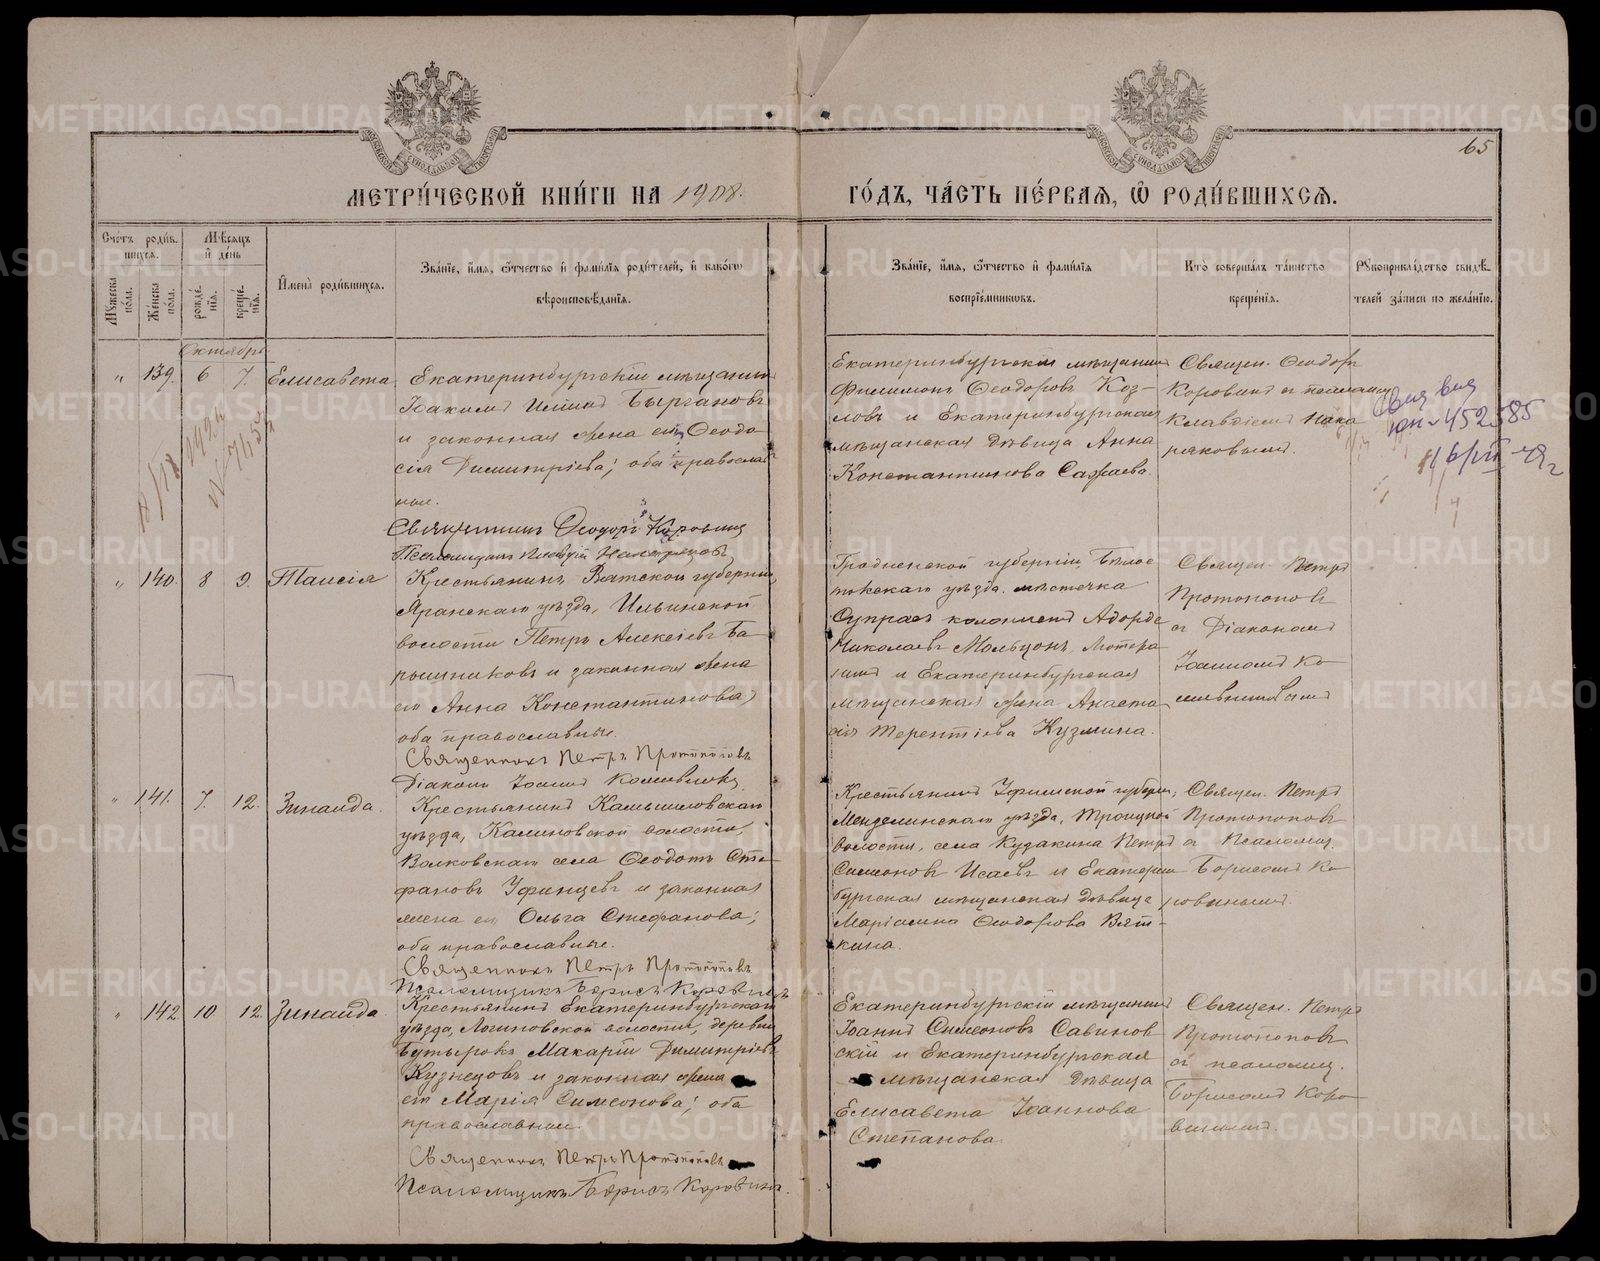 65
МЕТРИ́ЧЕСКОЙ КНИ́ГИ НА 1908.
ГО́ДЪ, ЧА́СТЬ ПЕ́РВАѦ, Ѡ҆ РОДИ́ВШИХСѦ.
Сче́тъ роди́в-
шихсѧ.
Мѣ́сѧцъ
и҆ де́нь
Мꙋжеска
пола.
Же́нска
по́ла.
рожде́-
нїѧ.
креще́-
нїѧ.
И҆мена̀ роди́вшихсѧ.
Зва́нїе, и҆́мѧ, ѻ҆́тчество и҆ фами́лїѧ роди́телей, и҆ како́гѡ
вѣроисповѣ́данїѧ.
Зва́нїе, и҆́мѧ, ѻ҆́тчество и҆ фами́лїѧ
воспрїе́мникѡвъ.
Кто̀ соверша́лъ та́инство
креще́нїѧ.
Рꙋкоприкла́дство свидѣ́-
телей за́писи по жела́нїю.
Октябрь
" 139. 6 7. Елисавета.
Екатеринбургскій мѣщанинъ
Іоакимъ Ильинъ Быргановъ
и законная жена его Ѳеодо-
сія Димитріева; оба православ-
ные.
Священникъ Ѳеодоръ Коровинъ
Псаломщикъ Клавдій
Екатеринбургскій мѣщанинъ
Филимонъ Ѳеодоровъ Коз-
ловъ и Екатеринбургская
мѣщанская дѣвица Анна
Константинова Сажаева.
Священ. Ѳеодоръ
Коровинъ съ псаломщ.
Клавдіемъ
" 140. 8 9. Таисія
Крестьянинъ Вятской губерніи,
Яранскаго уѣзда, Ильинской
волости Петръ Алексіевъ Ба-
рышниковъ и законная жена
его Анна Константинова;
оба православные.
Священникъ Петръ Протопоповъ
Діаконъ Іоаннъ
Гродненской губерніи, Бѣлос-
токскаго уѣзда, мѣстечка
Супрасъ колонистъ Адольфъ
Николаевъ Мольцонъ, Лютера-
нинъ и Екатеринбургская
мѣщанская жена Анаста-
сія Терентіева Кузмина.
Священ. Петръ
Протопоповъ
съ Діакономъ
Іоанномъ
" 141. 7. 12. Зинаида.
Крестьянинъ Камышловскаго
уѣзда, Калиновской волости,
Волковскаго села Ѳеодотъ Сте-
фановъ Уфинцевъ и законная
жена его Ольга Стефанова;
оба православные.
Священникъ Петръ Протопоповъ
Псаломщикъ Борисъ Коровинъ
Крестьянинъ Уфимской губерн.,
Мензелинскаго уѣзда, Троицкой
волости, села Кудакина Петръ
Симеоновъ Исаевъ и Екатерин-
бургская мѣщанская дѣвица
Маріамна Ѳеодорова Вят-
кина.
Священ. Петръ
Протопоповъ
съ Псаломщ.
Борисомъ Ко-
ровинымъ.
" 142 10 12. Зинаида
Крестьянинъ Екатеринбургскаго
уѣзда, Логиновской волости, деревни
Бутырокъ Макарій Димитріевъ
Кузнецовъ и законная жена
его Марія Симеонова; оба
православные.
Священникъ Петръ Протопоповъ
Псаломщикъ Борисъ Коровинъ.
Екатеринбургскій мѣщанинъ
Іоаннъ Симеоновъ Савинов-
скій и Екатеринбургская
мѣщанская дѣвица
Елисавета Іоаннова
Степанова.
Священ. Петръ
Протопоповъ
съ псаломщ.
Борисомъ Коро-
винымъ.
METRIKI.GASO-URAL.RU